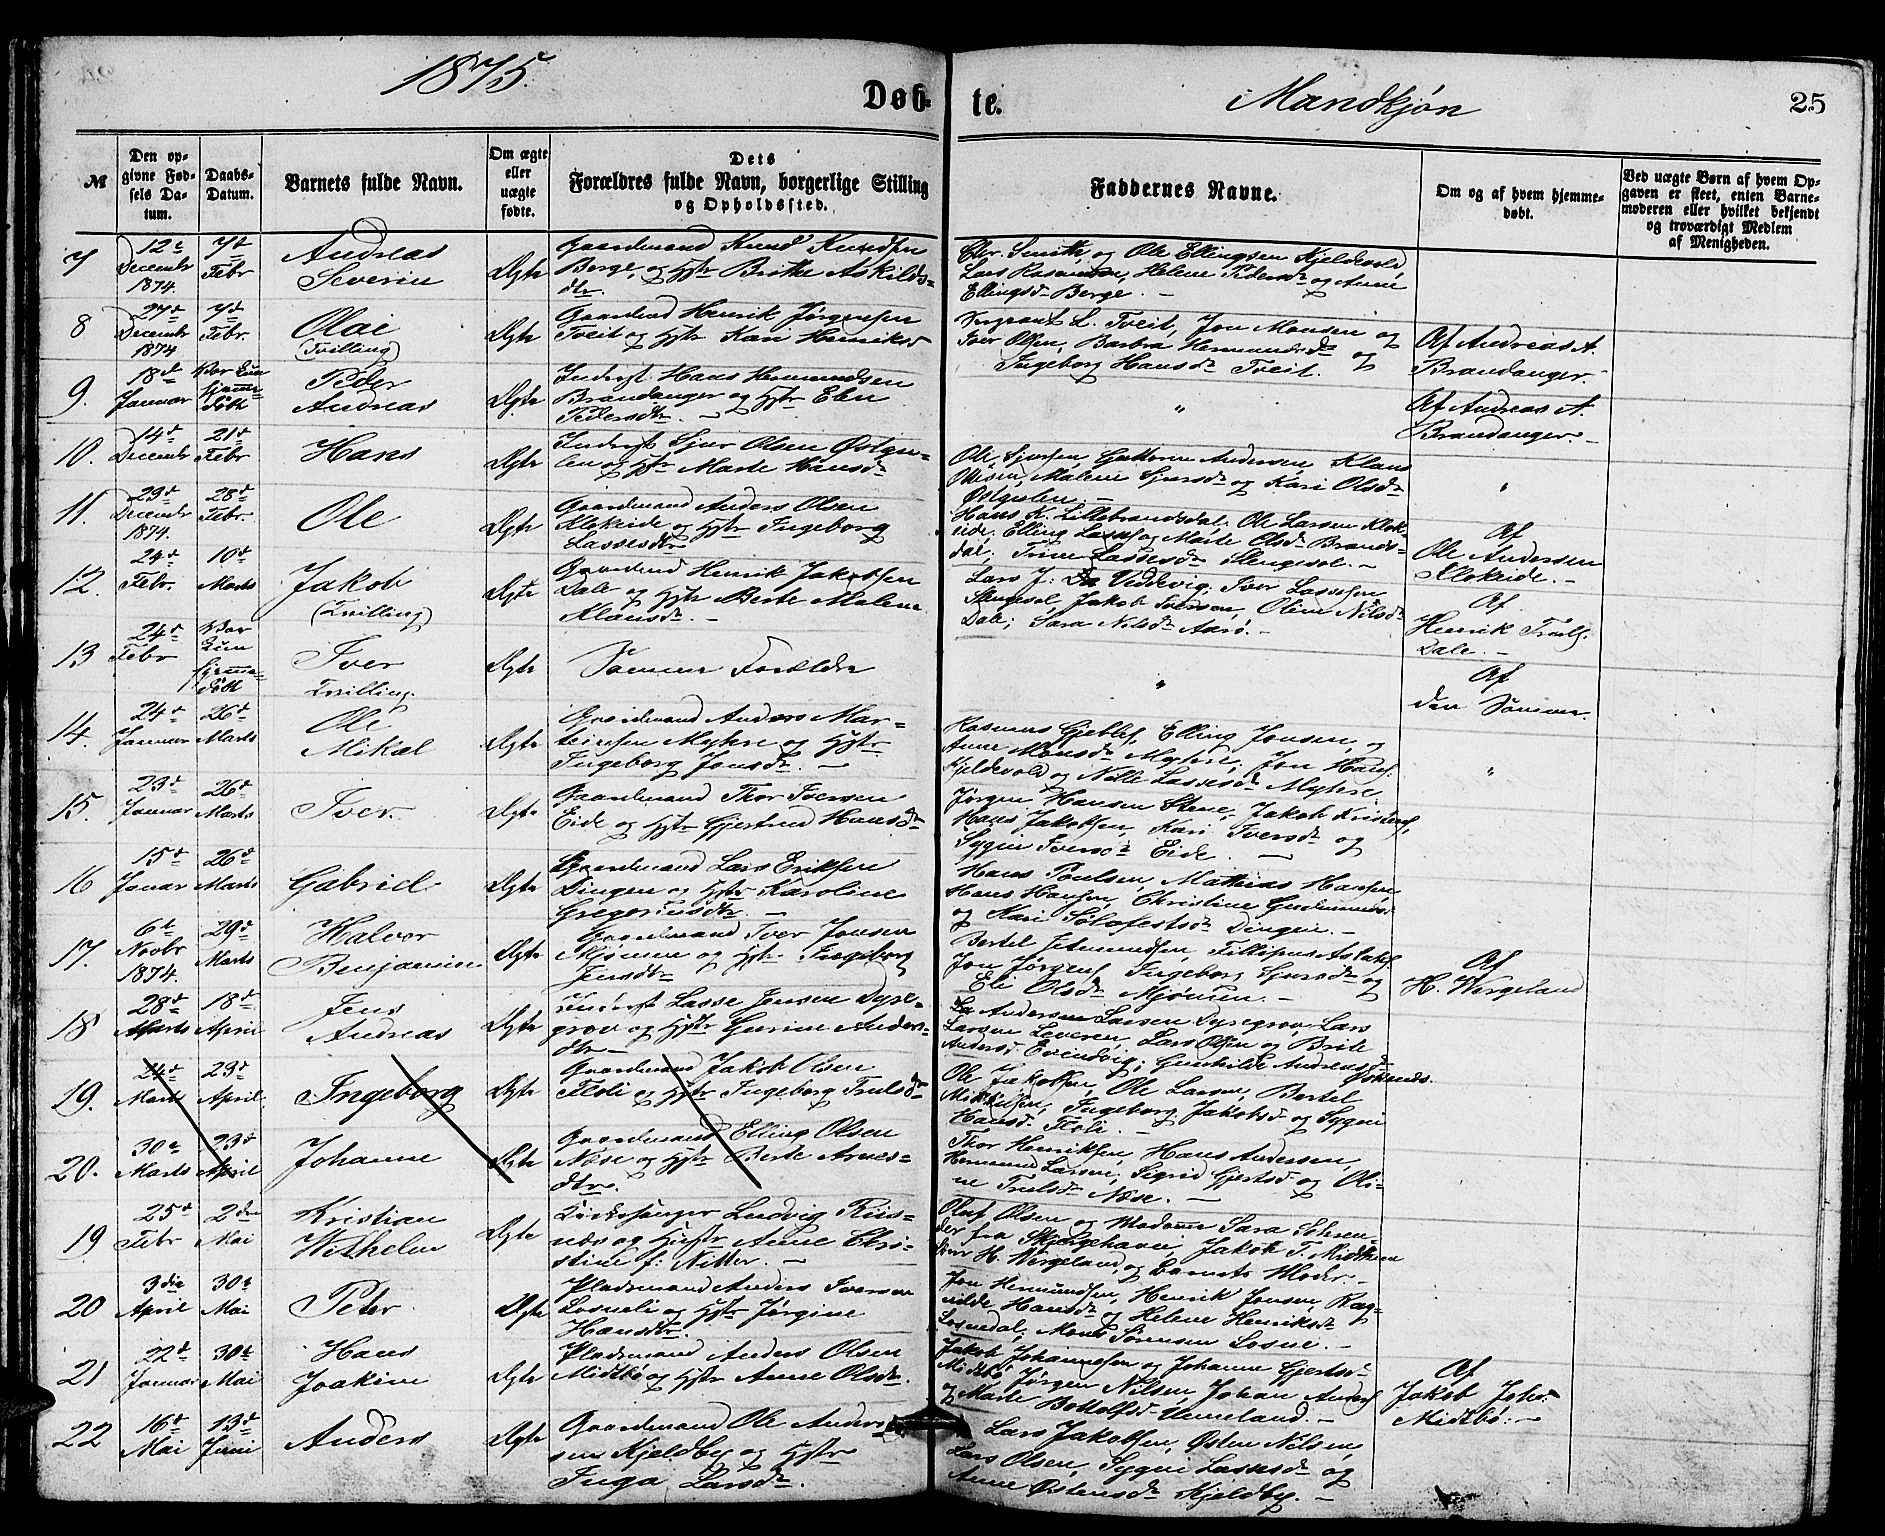 1875.
Døb-
te.
Mandkjøn
25
№
Den op-
givne Fød-
sels Da-
tum.
Daabs-
Datum.
Barnets fulde Navn.
Om ægte
eller
uægte
fødte.
Dets
Forældres fulde Navn, borgerlige Stilling
og Opholdssted.
Faddernes Navne.
Om og af hvem hjemme-
døbt.
Ved uægte Børn af hvem Op-
gaven er skeet, enten Barne-
moderen eller hvilket bekjendt
og troværdigt Medlem
af Menigheden.
7
12te
Decembr
1874.
7de
Febr
Andreas
Severin
Ægte
Gaardmand Knud Knudsen
Berge, og Hstr Brithe Askilds-
dtr.
Chr. Smith, og Ole Ellingsen Kjeldevold,
Lars Rasmussen, Helene Pedersd og Anne
Ellingsd Berge. —
8
27de
Decembr
1874
7de
Febr.
Olai
(Tvilling)
Ægte
Gaardmd Henrik Jørgensen
Tveit og Hstr Kari Henriksd
Sergeant L. Tveit, Jon Monsen og
Iver Olsen, Barbra Hermundsdr og
Ingeborg Hansdr Tveit.
Af Andreas A.
Brandanger.
9.
18de
Januar
Var kun
hjemme-
døbt
Peder
Andreas
Ægte
Inderst Hans Hermundsen
Brandanger og Hstr Elen
Pedersdtr. —
"
Af Andreas A.
Brandanger. —
10.
14de
Decembr
21de
Febr
Hans
Ægte
Inderst Sjur Olsen Østgu-
len og Hstr Marte Hansdr
Ole Sjursen, Guttorm Andersen, Klaus
Olsen, Malene Sjursdr og Kari Olsdr
Østgulen. —
"
11.
29de
Decembr
1874.
28de
Febr.
Ole
Ægte
Gaardmand Anders Olsen
Klokeide og Hstr Ingeborg
Lassesdtr
Hans K. Lillebrandsdal, Ole Larsen Klok-
eide, Elling Lassen og Marte Olsdr Brands-
dal; Trine Lassesdr Slengesol. —
Af
Ole Andersen
Klokeide. —
12.
24de
Febr.
10de
Marts
Jakob
(Tvilling)
Ægte
Gaardmd Henrik Jakobsen
Dale og Hstr Berte Malene
Klausdr. —
Lars J. Veddevig, Iver Lassesen
Slengesol, Jakob Iverson, Oline Nilsdr
Dale; Sara Nilsdr Aarø. —
Af
Henrik Truls.
Dale. —
13
24de
Febr
Var
kun
hjemme-
døbt
Iver
Tvilling.
Ægte
Samme Forældre
"
Af
den Samme.
14.
24de
Januar
26de
Marts
Ole
Mikal
Ægte
Gaardmand Anders Mar-
teinsen Myhre og Hstr
Ingeborg Jonsdr. —
Rasmus Gjeble, Elling Jonsen, og
Anne Monsdr Myhre; Jon Hans.
Kjeldevold og Nille Lassesdr Myhre.
"
15.
23de
Januar
26de
Marts
Iver.
Ægte
Gaardmand Thor Iversen
Eide og Hstr Gjertrud Hansdr
Jørgen Hansen Stene, Jakob Kristens.
Hans Jakobsen, Kari Iversdr og
Sygni Iversdr Eide. —
16
15de
Januar
26de
Marts
Gabriel
Ægte
Gaardmand Lars Eriksen
Dingen og Hstr Karoline
Gregoriusdtr. —
Hans Poulsen, Mathias Hansen,
Hans Hansen, Christine Gudmundsd
og Kari Solofestsdr Dingen. —
17.
6te
Novbr
1874.
29de
Marts
Halvor
Benjamin
Ægte
Gaardmand Iver Jonsen
Mjømen og Hstr. Ingeborg
Jensdtr
Bertel Jetmundsen, Fillipus Aslaks.
Jon Jørgens, Ingeborg Sjursdr og
Eli Olsdr Mjømen. —
Af
H. Wergeland
18
28de
Marts
18de
April
Jens
Andreas
Ægte
Inderst Lasse Jensen Dyre-
grov og Hstr Gurine Anders-
dtr —
Andersen Larsen Dyregrov Lars
Larsen Leveren, Lars Olsen og Brite
Andersd Evindvig; Gunhilde Andreasdr
Østrands.
19.
24de
Marts
23de
April.
Ingeborg
Ægte
Gaardmand Jakob Olsen
Floli og Hstr Ingeborg Trulsdr
Ole Jakobsen, Ole Larsen, Bertel
Mikkelsen, Ingeborg Jakobsd og Sygni
Hansd Floli. —
20.
30te
Marts
23de
April
Johanne
Ægte
Gaardmand Elling Olsen
Næse og Hstr Berte Arnes-
dtr.
Thor Henriksen, Hans Andersen,
Hermund Larsen, Sigrid Gjertsd og Oli-
ne Trulsdr Næse. —
19
25de
Febr
2den
Mai
Kristian
Wilhelm
Ægte
Kirkesanger Ludvig Riis-
næs og Hustr Anne Chri-
stine f. Nitter. —
Oluf Olsen og Madame Sara Sohren-
der fra Skjergehavn, Jakob T. Midthun
H. Wergeland, og Barnets Moder. —
20
3die
April
30te
Mai
Peter
Ægte
Pladsmand Anders Iversen
Losneli og Hstr Jørgine
Hansdtr.
Jon Hermundsen, Henrik Jonsen, Rag-
nilde Hansdr og Helene Henriksdr
Losnedal, Mons Sørensen Losne. —
21
22de
Januar
30te
Mai
Hans
Joakim
Ægte
Pladsmand Anders Olsen
Midtbø og Hstr Anne Olsdr.
Jakob Johannesen og Johanne Gjertsd
Midtbø, Jørgen Nilsen, Johan Anders.
og Marte Bottolfsd Venneland. —
Af
Jakob Joh.
Midtbø. —
22
16de
Mai
13de
Juni
Anders
Ægte
Gaardmand Ole Anders
sen Kjeldby og Hstr
Inga Larsdr.
Lars Jakobsen, Østen Nilsen,
Lars Olsen, Sygni Lassesdr og
Anne Østensdr Kjeldby. —